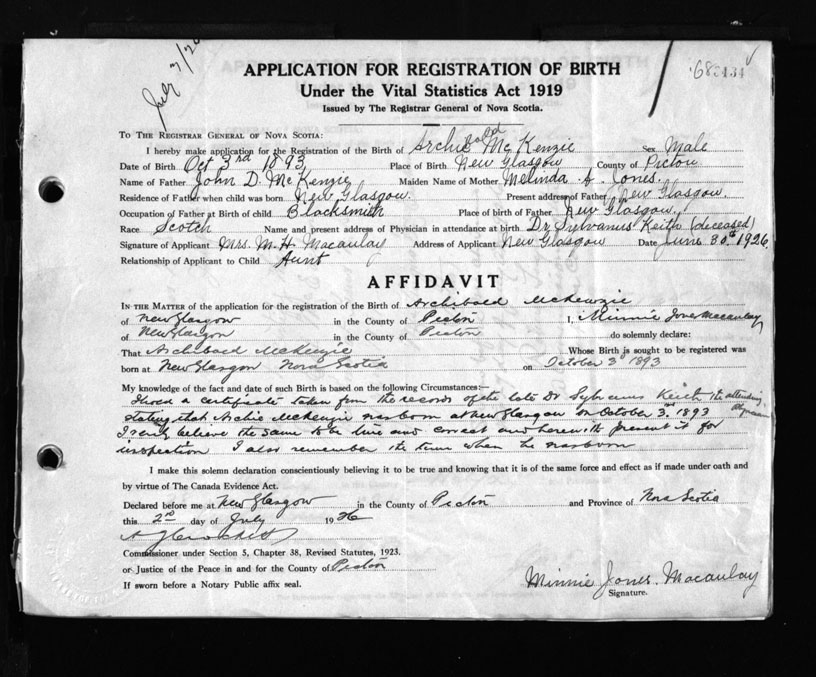 July 7/26
APPLICATION FOR REGISTRATION OF BIRTH
Under the Vital Statistics Act 1919
Issued by The Registrar General of Nova Scotia.
TO THE REGISTRAR GENERAL OF NOVA SCOTIA:
I hereby make application for the Registration of the Birth of Archibald McKenzie Sex Male
Date of Birth Oct 3rd 1893 Place of Birth New Glasgow County of Pictou
Name of Father John D. McKenzie Maiden Name of Mother Melinda A. Jones.
Residence of Father when child was born New Glasgow. Present address of Father New Glasgow.
Occupation of Father at Birth of child Blacksmith Place of birth of Father New Glasgow.
Race Scotch Name and present address of Physician in attendance at birth Dr Sylvanus Keith (deceased)
Signature of Applicant Mrs. M. H. Macaulay Address of Applicant New Glasgow Date June 30th 1926
Relationship of Applicant to Child Aunt
AFFIDAVIT
IN THE MATTER of the application for the registration of the Birth of Archibald McKenzie
of New Glasgow in the County of Pictou I, Minnie Jones Macaulay
of New Glasgow in the County of Pictou do solemnly declare:
That Archibald McKenzie Whose Birth is sought to be registered was
born at New Glasgow Nova Scotia on October 3rd 1893
My knowledge of the fact and date of such Birth is based on the following Circumstances:—
a certificate taken from the records of the late Dr Sylvanus Keith the attending physician
stating that Archie McKenzie was born at New Glasgow on October 3rd. 1893
I verily believe the same to be true and correct and herewith present it for
inspection I also remember the time when he was born
I make this solemn declaration conscientiously believing it to be true and knowing that it is of the same force and effect as if made under oath and
by virtue of The Canada Evidence Act.
Declared before me at New Glasgow in the County of Pictou and Province of Nova Scotia
this 2nd day of July 1926
Commissioner under Section 5, Chapter 38, Revised Statutes, 1923.
or Justice of the Peace in and for the County of Pictou
If sworn before a Notary Public affix seal.
Minnie Jones. Macaulay
Signature.